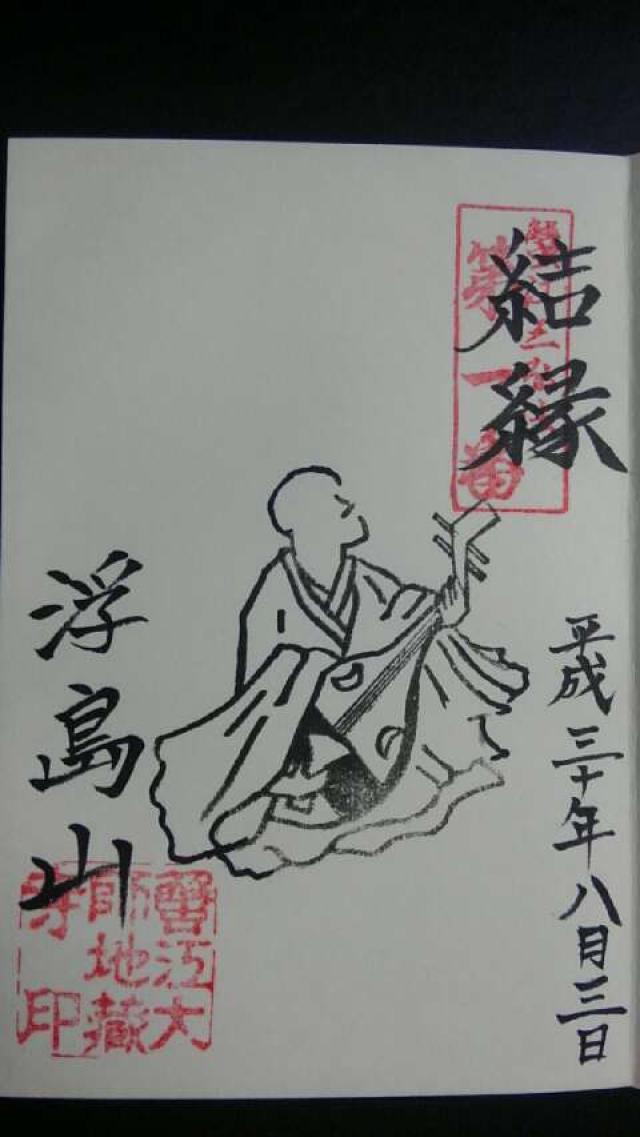 結縁
第一番
平成三十年八月三日
浮島山
蟹江大
師地蔵
寺印